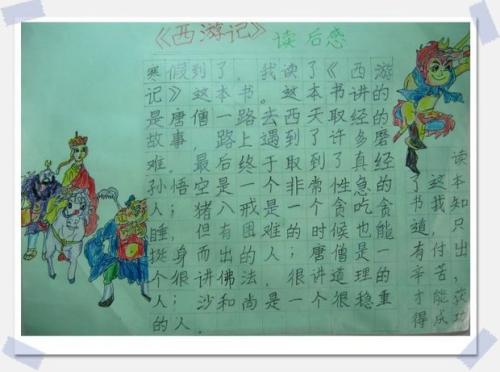 《西游记》读后感
寒假到了，我读了《西游
记》这本书。这本书讲的
是唐僧一路去西天取经的
故事，路上遇到了许多磨
难，最后终于取到了真经
孙悟空是一个非常性急的
人；猪八戒是一个贪吃贪
睡，但有困难的时候也能
挺身而出的人；唐僧是一
个很讲佛法，很讲道理的
人；沙和尚是一个很稳重
的人。
读
了这本
书我知
道只
有付出，
辛苦
才能获
得成功